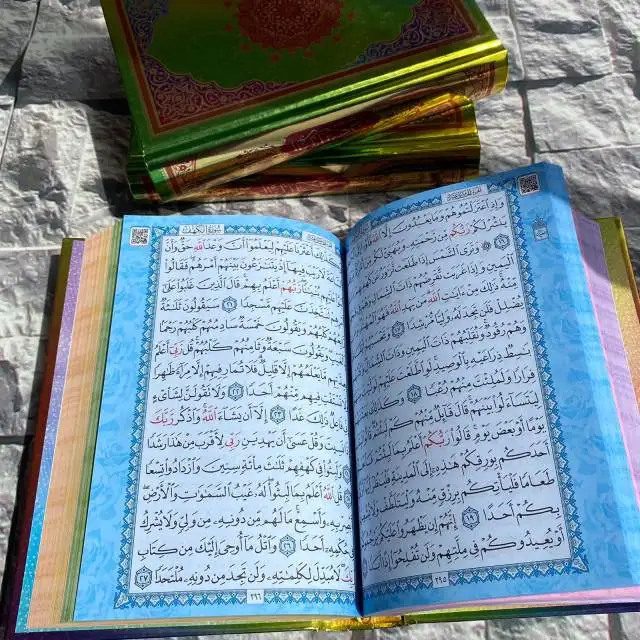 سورة الكهف
وَإِذِ ٱعْتَزَلْتُمُوهُمْ وَمَا يَعْبُدُونَ إِلَّا ٱللَّهَ
يَنشُرْ لَكُمْ رَبُّكُم مِّن رَّحْمَتِهِۦ وَيُهَيِّئْ لَكُم
۞ وَتَرَى ٱلشَّمْسَ إِذَا طَلَعَت تَّزَٰوَرُ
ٱلْيَمِينِ وَإِذَا غَرَبَت تَّقْرِضُهُمْ ذَاتَ ٱلشِّمَالِ
مِّنْهُ ذَٰلِكَ مِنْ ءَايَٰتِ ٱللَّهِ مَن يَهْدِ ٱللَّهُ فَهُوَ ٱلْمُهْتَدِ
يُضْلِلْ فَلَن تَجِدَ لَهُۥ وَلِيًّا مُّرْشِدًا ١٧
وَهُمْ رُقُودٌ وَنُقَلِّبُهُمْ ذَاتَ ٱلْيَمِينِ وَذَاتَ
بَٰسِطٌ ذِرَاعَيْهِ بِٱلْوَصِيدِ لَوِ ٱطَّلَعْتَ عَلَيْهِمْ
فِرَارًا وَلَمُلِئْتَ مِنْهُمْ رُعْبًا ١٨ وَكَذَٰلِكَ
لِيَتَسَآءَلُوا۟ بَيْنَهُمْ قَالَ قَآئِلٌ مِّنْهُمْ كَمْ لَبِثْتُمْ قَالُوا۟
يَوْمًا أَوْ بَعْضَ يَوْمٍ قَالُوا۟ رَبُّكُمْ أَعْلَمُ بِمَا لَبِثْتُمْ
أَحَدَكُم بِوَرِقِكُمْ هَٰذِهِۦٓ إِلَى ٱلْمَدِينَةِ
طَعَامًا فَلْيَأْتِكُم بِرِزْقٍ مِّنْهُ وَلْيَتَلَطَّفْ وَلَا
بِكُمْ أَحَدًا ١٩ إِنَّهُمْ إِن يَظْهَرُوا۟ عَلَيْكُمْ
أَوْ يُعِيدُوكُمْ فِى مِلَّتِهِمْ وَلَن تُفْلِحُوٓا۟ إِذًا
٢٩٥
سورة الكهف
عَلَيْهِمْ لِيَعْلَمُوٓا۟ أَنَّ وَعْدَ ٱللَّهِ حَقٌّ وَأَنَّ
لَا رَيْبَ فِيهَآ إِذْ يَتَنَٰزَعُونَ بَيْنَهُمْ أَمْرَهُمْ فَقَالُوا۟
رَّبُّهُمْ أَعْلَمُ بِهِمْ قَالَ ٱلَّذِينَ غَلَبُوا۟ عَلَىٰٓ
عَلَيْهِم مَّسْجِدًا ٢١ سَيَقُولُونَ ثَلَٰثَةٌ
كَلْبُهُمْ وَيَقُولُونَ خَمْسَةٌ سَادِسُهُمْ كَلْبُهُمْ رَجْمًۢا
وَيَقُولُونَ سَبْعَةٌ وَثَامِنُهُمْ كَلْبُهُمْ قُل رَّبِّىٓ أَعْلَمُ
مَّا يَعْلَمُهُمْ إِلَّا قَلِيلٌ فَلَا تُمَارِ فِيهِمْ إِلَّا مِرَآءً ظَٰهِرًا
تَسْتَفْتِ فِيهِم مِّنْهُمْ أَحَدًا ٢٢ وَلَا تَقُولَنَّ لِشَا۟ىْءٍ
فَاعِلٌ ذَٰلِكَ غَدًا ٢٣ إِلَّآ أَن يَشَآءَ ٱللَّهُ وَٱذْكُر رَّبَّكَ
وَقُلْ عَسَىٰٓ أَن يَهْدِيَنِ رَبِّى لِأَقْرَبَ مِنْ هَٰذَا رَشَدًا
وَلَبِثُوا۟ فِى كَهْفِهِمْ ثَلَٰثَ مِا۟ئَةٍ سِنِينَ وَٱزْدَادُوا۟ تِسْعًا
ٱللَّهُ أَعْلَمُ بِمَا لَبِثُوا۟ لَهُۥ غَيْبُ ٱلسَّمَٰوَٰتِ وَٱلْأَرْضِ
بِهِۦ وَأَسْمِعْ مَا لَهُم مِّن دُونِهِۦ مِن وَلِىٍّ وَلَا يُشْرِكُ
حُكْمِهِۦٓ أَحَدًا ٢٦ وَٱتْلُ مَآ أُوحِىَ إِلَيْكَ مِن كِتَابِ
لَا مُبَدِّلَ لِكَلِمَٰتِهِۦ وَلَن تَجِدَ مِن دُونِهِۦ مُلْتَحَدًا ٢٧
٢٩٦